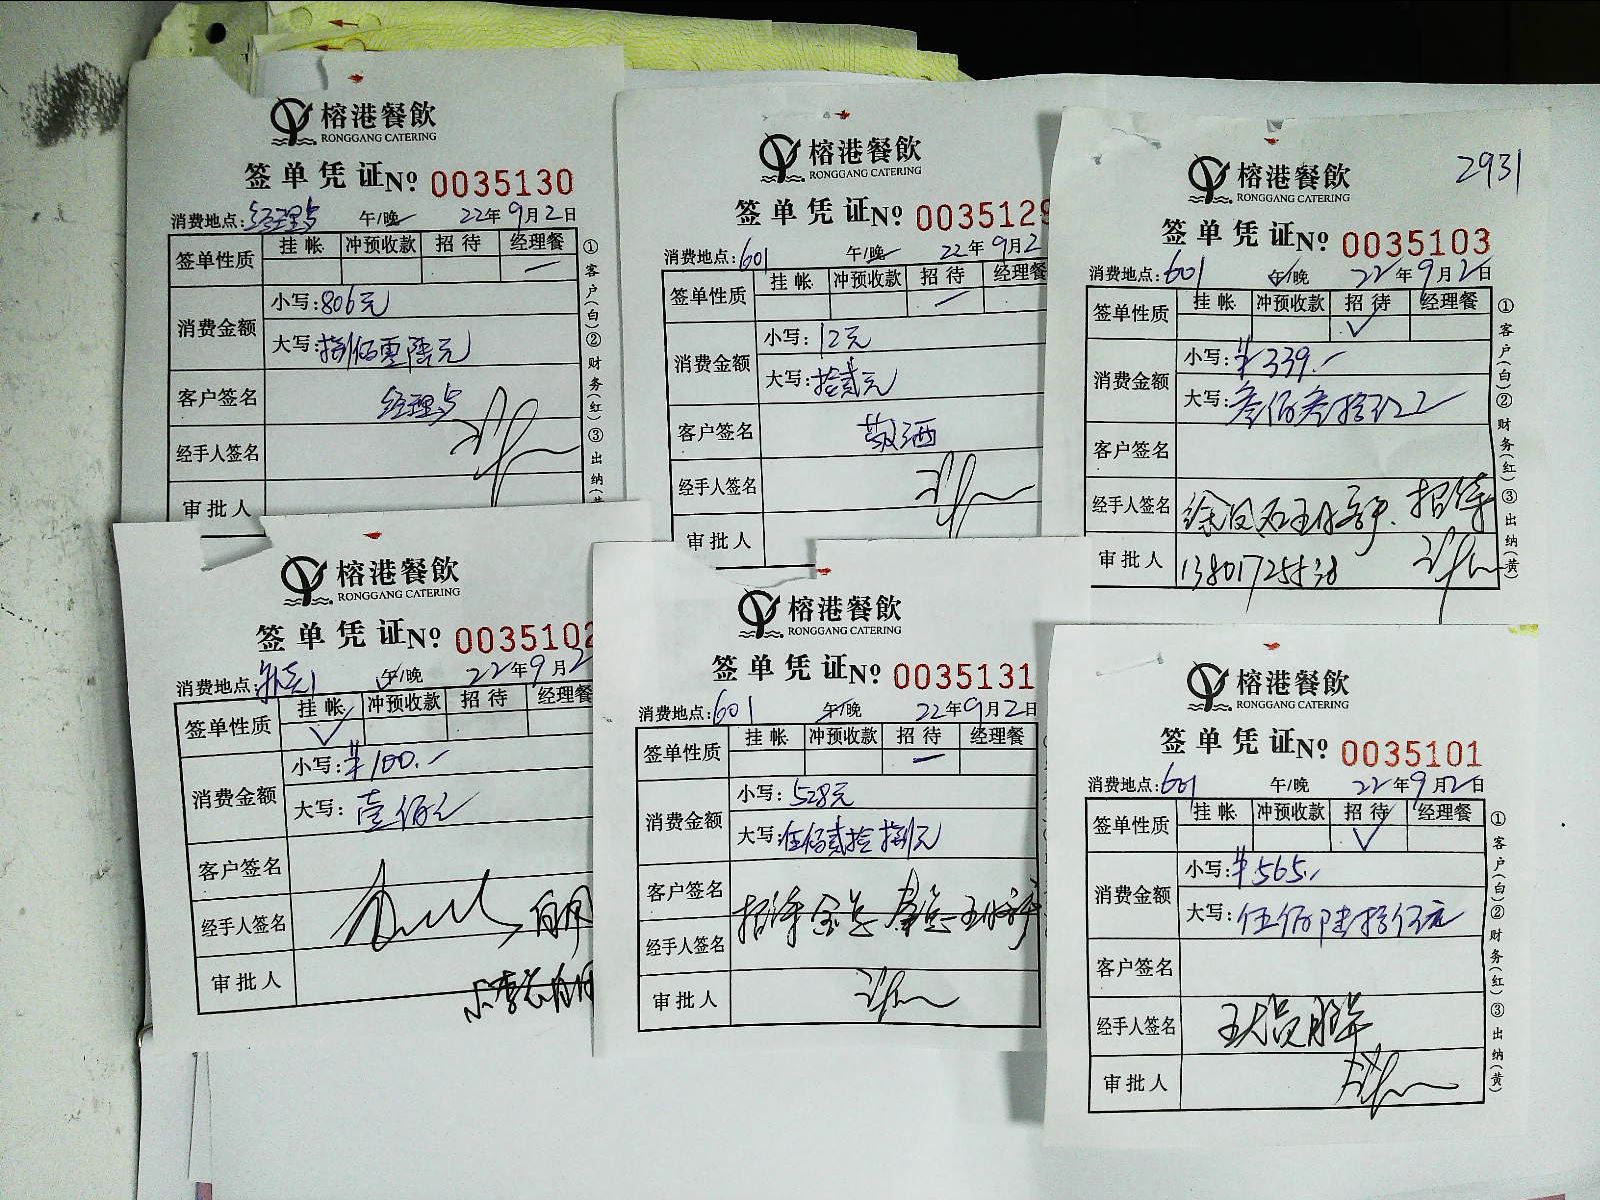 榕港餐飲
RONGGANG CATERING
签单凭证№ 0035130
消费地点: 午/晚 22年9月2日
签单性质 挂帐 冲预收款 招待 经理餐
消费金额 小写:806元
大写:捌佰零陆元
客户签名
经手人签名
审批人
①客户(白)②财务(红)③出纳
榕港餐飲
RONGGANG CATERING
签单凭证№ 0035129
消费地点:601 午/晚 22年9月2
签单性质 挂帐 冲预收款 招待 经理餐
消费金额 小写:12元
大写:拾贰元
客户签名 敬酒
经手人签名
审批人
2931
榕港餐飲
RONGGANG CATERING
签单凭证№ 0035103
消费地点:601 午/晚 22年9月2日
签单性质 挂帐 冲预收款 招待 经理餐
消费金额 小写:¥339.-
大写:叁佰叁拾玖元
客户签名
经手人签名 招待
审批人 13801725538
①客户(白)②财务(红)③出纳(黄)
榕港餐飲
RONGGANG CATERING
签单凭证№ 0035102
消费地点: 午/晚 22年9月2
签单性质 挂帐 冲预收款 招待 经理餐
消费金额 小写:¥100.-
大写:壹佰元
客户签名
经手人签名
审批人
榕港餐飲
RONGGANG CATERING
签单凭证№ 0035131
消费地点:601 午/晚 22年9月2日
签单性质 挂帐 冲预收款 招待 经理餐
消费金额 小写:528元
大写:伍佰贰拾捌元
客户签名
经手人签名 招待
审批人
榕港餐飲
RONGGANG CATERING
签单凭证№ 0035101
消费地点:601 午/晚 22年9月2日
签单性质 挂帐 冲预收款 招待 经理餐
消费金额 小写:¥565.-
大写:伍佰陆拾伍元
客户签名
经手人签名
审批人
①客户(白)②财务(红)③出纳(黄)